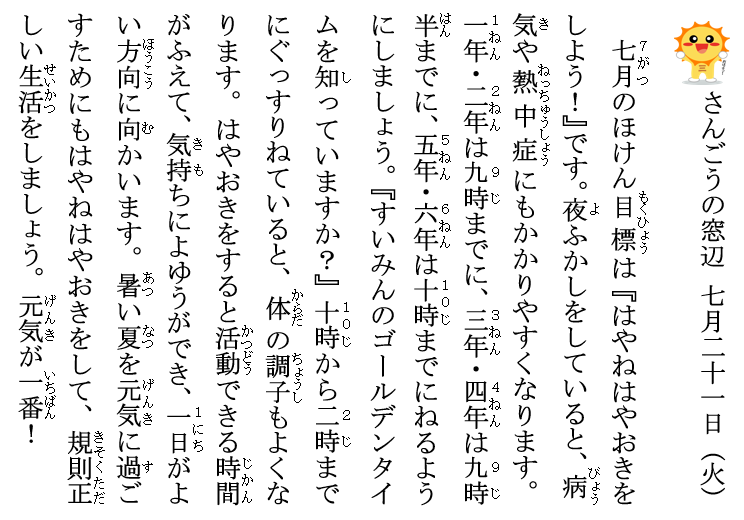 さんごうの窓辺　七月二十一日（火）
七月のほけん目標は『はやねはやおきを
しよう！』です。夜ふかしをしていると、病
気や熱中症にもかかりやすくなります。
一年・二年は九時までに、三年・四年は九時
半までに、五年・六年は十時までにねるよう
にしましょう。『すいみんのゴールデンタイ
ムを知っていますか？』十時から二時まで
にぐっすりねていると、体の調子もよくな
ります。はやおきをすると活動できる時間
がふえて、気持ちによゆうができ、一日がよ
い方向に向かいます。暑い夏を元気に過ご
すためにもはやねはやおきをして、規則正
しい生活をしましょう。元気が一番！